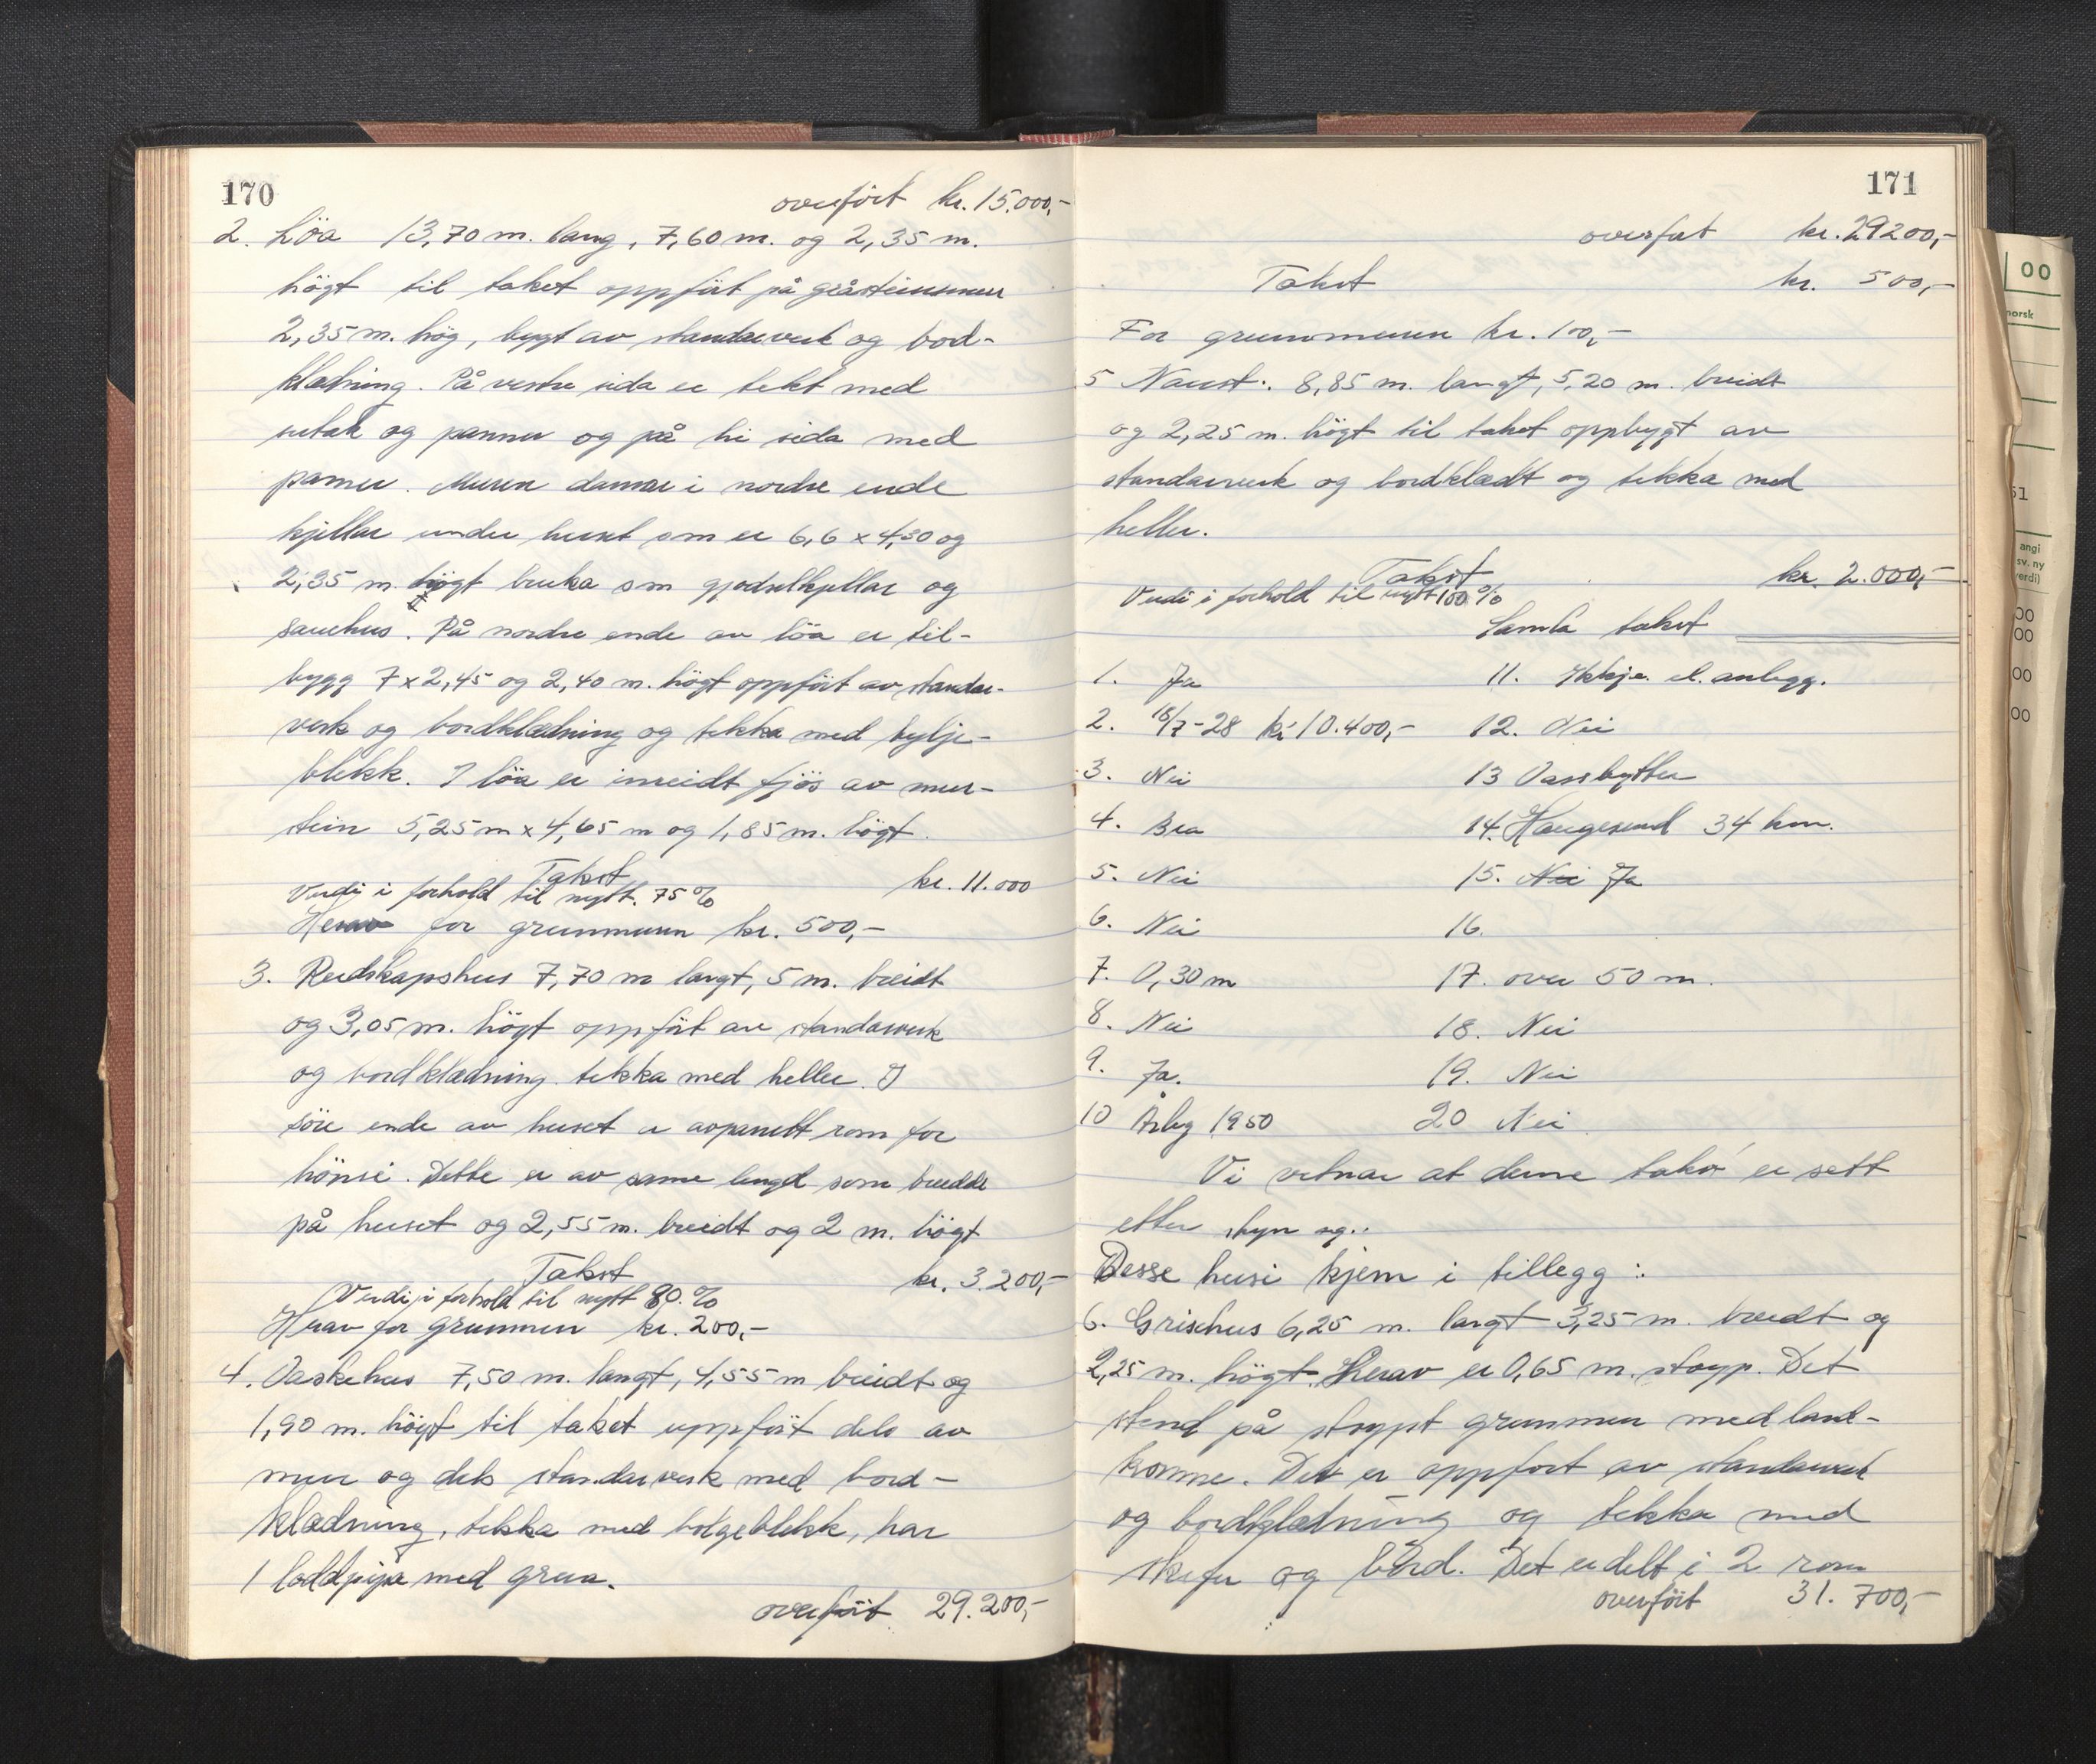 170
overført kr. 15.000,-
2. Löa 13,70 m. lang, 7,60 m. og 2,35 m.
högt til taket oppfört på gråsteinsmur
2,35 m. hög, bygt av standarverk og bod-
klædning. På vestre sida er tekt med
sutak og pannur og på hi sida med
panner. Muren dannar i nordre ende
kjellar under huset som er 6,6 x 4,30 og
2,35 m. högt bruka som gjødselkjellar og
sauehus. På nordre ende av löa er til-
bygg 7 x 2,45 og 2,40 m. högt oppfört av standar-
verk og bordklædning og tekka med bylje-
blekk. I löa er innreidt fjös av mur-
stein 5,25 m x 4,65 m og 1,85 m. högt.
Takst kr. 11.000
Verdi i forhold til nytt. 75 %
Herav for grunnmuren kr. 500,-
3. Reidskapshus 7,70 m langt, 5 m. breidt
og 3,05 m. högt oppfört av standarverk
og bordklædning tekka med heller. I
söre ende av huset er avpanelt rom for
hönsi. Dette er av same lengd som breidde
på huset og 2,55 m. breidt og 2 m. högt
Takst kr. 3.200,-
Verdi i forhold til nytt 80 %
Herav for grunnmuren kr. 200,-
4. Vaskehus 7,50 m. langt, 4,55 m breidt og
1,90 m. högt til taket uppfört dels av
mur og dels standarverk med bord-
klædning, tekka med bolgeblekk, har
1 loddpipa med grua.
overfört 29.200,-
171
overført kr. 29200,-
Takst kr. 500,-
For grunnmuren kr. 100,-
5 Naust: 8,85 m. langt, 5,20 m. breidt
og 2,25 m. högt til taket oppbygt av
standarverk og bordklædt og tekka med
heller.
Takst kr. 2.000,-
Verdi i forhold til nytt 100 %
Samla takst
1. Ja 11. Ikkje el. anlegg.
2. 18/7-28 kr 10.400,- 12. Nei
3. Nei 13 Vassbytter
4. Bra 14. Haugesund 34 km.
5. Nei 15. Nei Ja
6. Nei 16.
7. 0,30 m 17. over 50 m.
8. Nei 18. Nei
9. Ja. 19. Nei
10 Årleg 1950 20 Nei
Vi vitnar at denne takst er sett
etter skyn og..
Desse husi kjem i tillegg:
6. Grisehus 6,25 m. langt 3,25 m. breidt og
2,25 m. högt. Herav er 0,65 m. stoypp. Det
stend på stoypt grunnmur med land-
komme. Det er oppfort av standarverk
og bordklædning og tekka med
skifer og bord. Det er delt i 2 rom
overfört 31.700,-
00
norsk
51
angi
sv. ny
verdi)
00
00
00
00